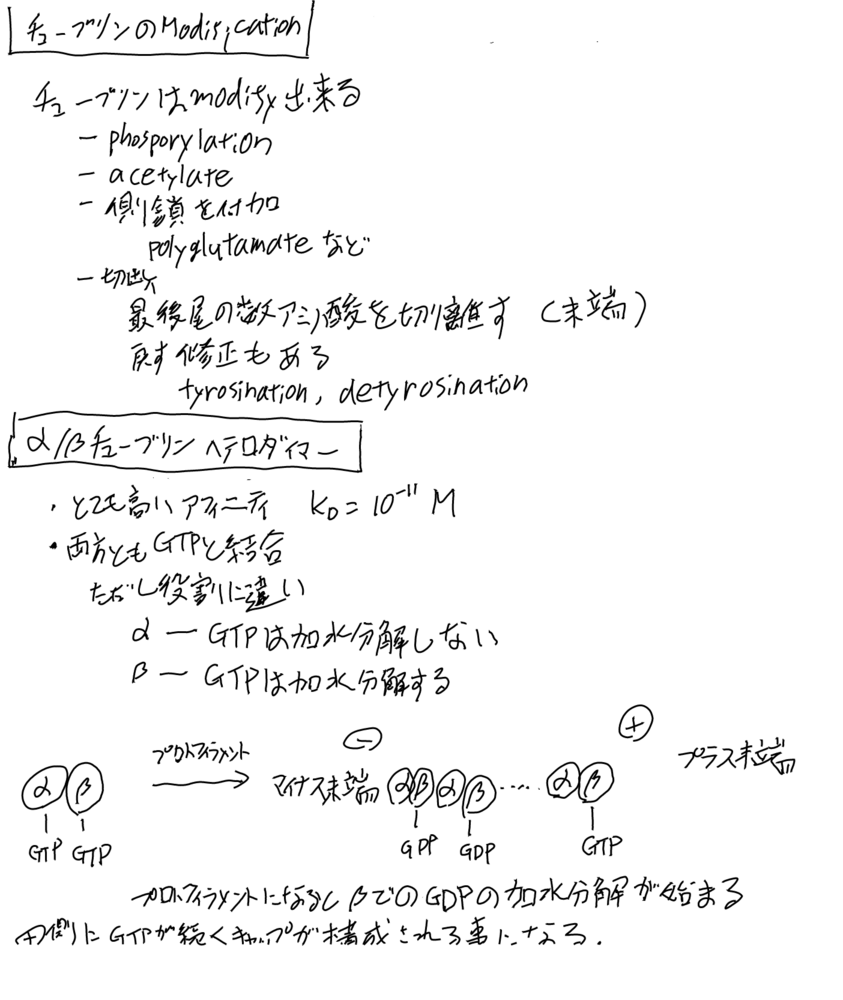 チューブリンのModification
チューブリンはmodify出来る
- phosporylation
- acetylate
- 側鎖を付加
polyglutamateなど
- 切断
最後尾の数アミノ酸を切り離す (末端)
戻す修正もある
tyrosination, detyrosination
α/βチューブリン ヘテロダイマー
・とても高いアフィニティ KD = 10⁻¹¹ M
・両方ともGTPと結合
ただし役割に違い
α ー GTPは加水分解しない
β ー GTPは加水分解する
α β プロトフィラメント マイナス末端 ⊖ α β α β ‥‥ α β ⊕ プラス末端
GTP GTP GDP GDP GTP
プロトフィラメントになるとβでのGDPの加水分解が始まる
+側にGTPが続くキャップが構成される事になる.